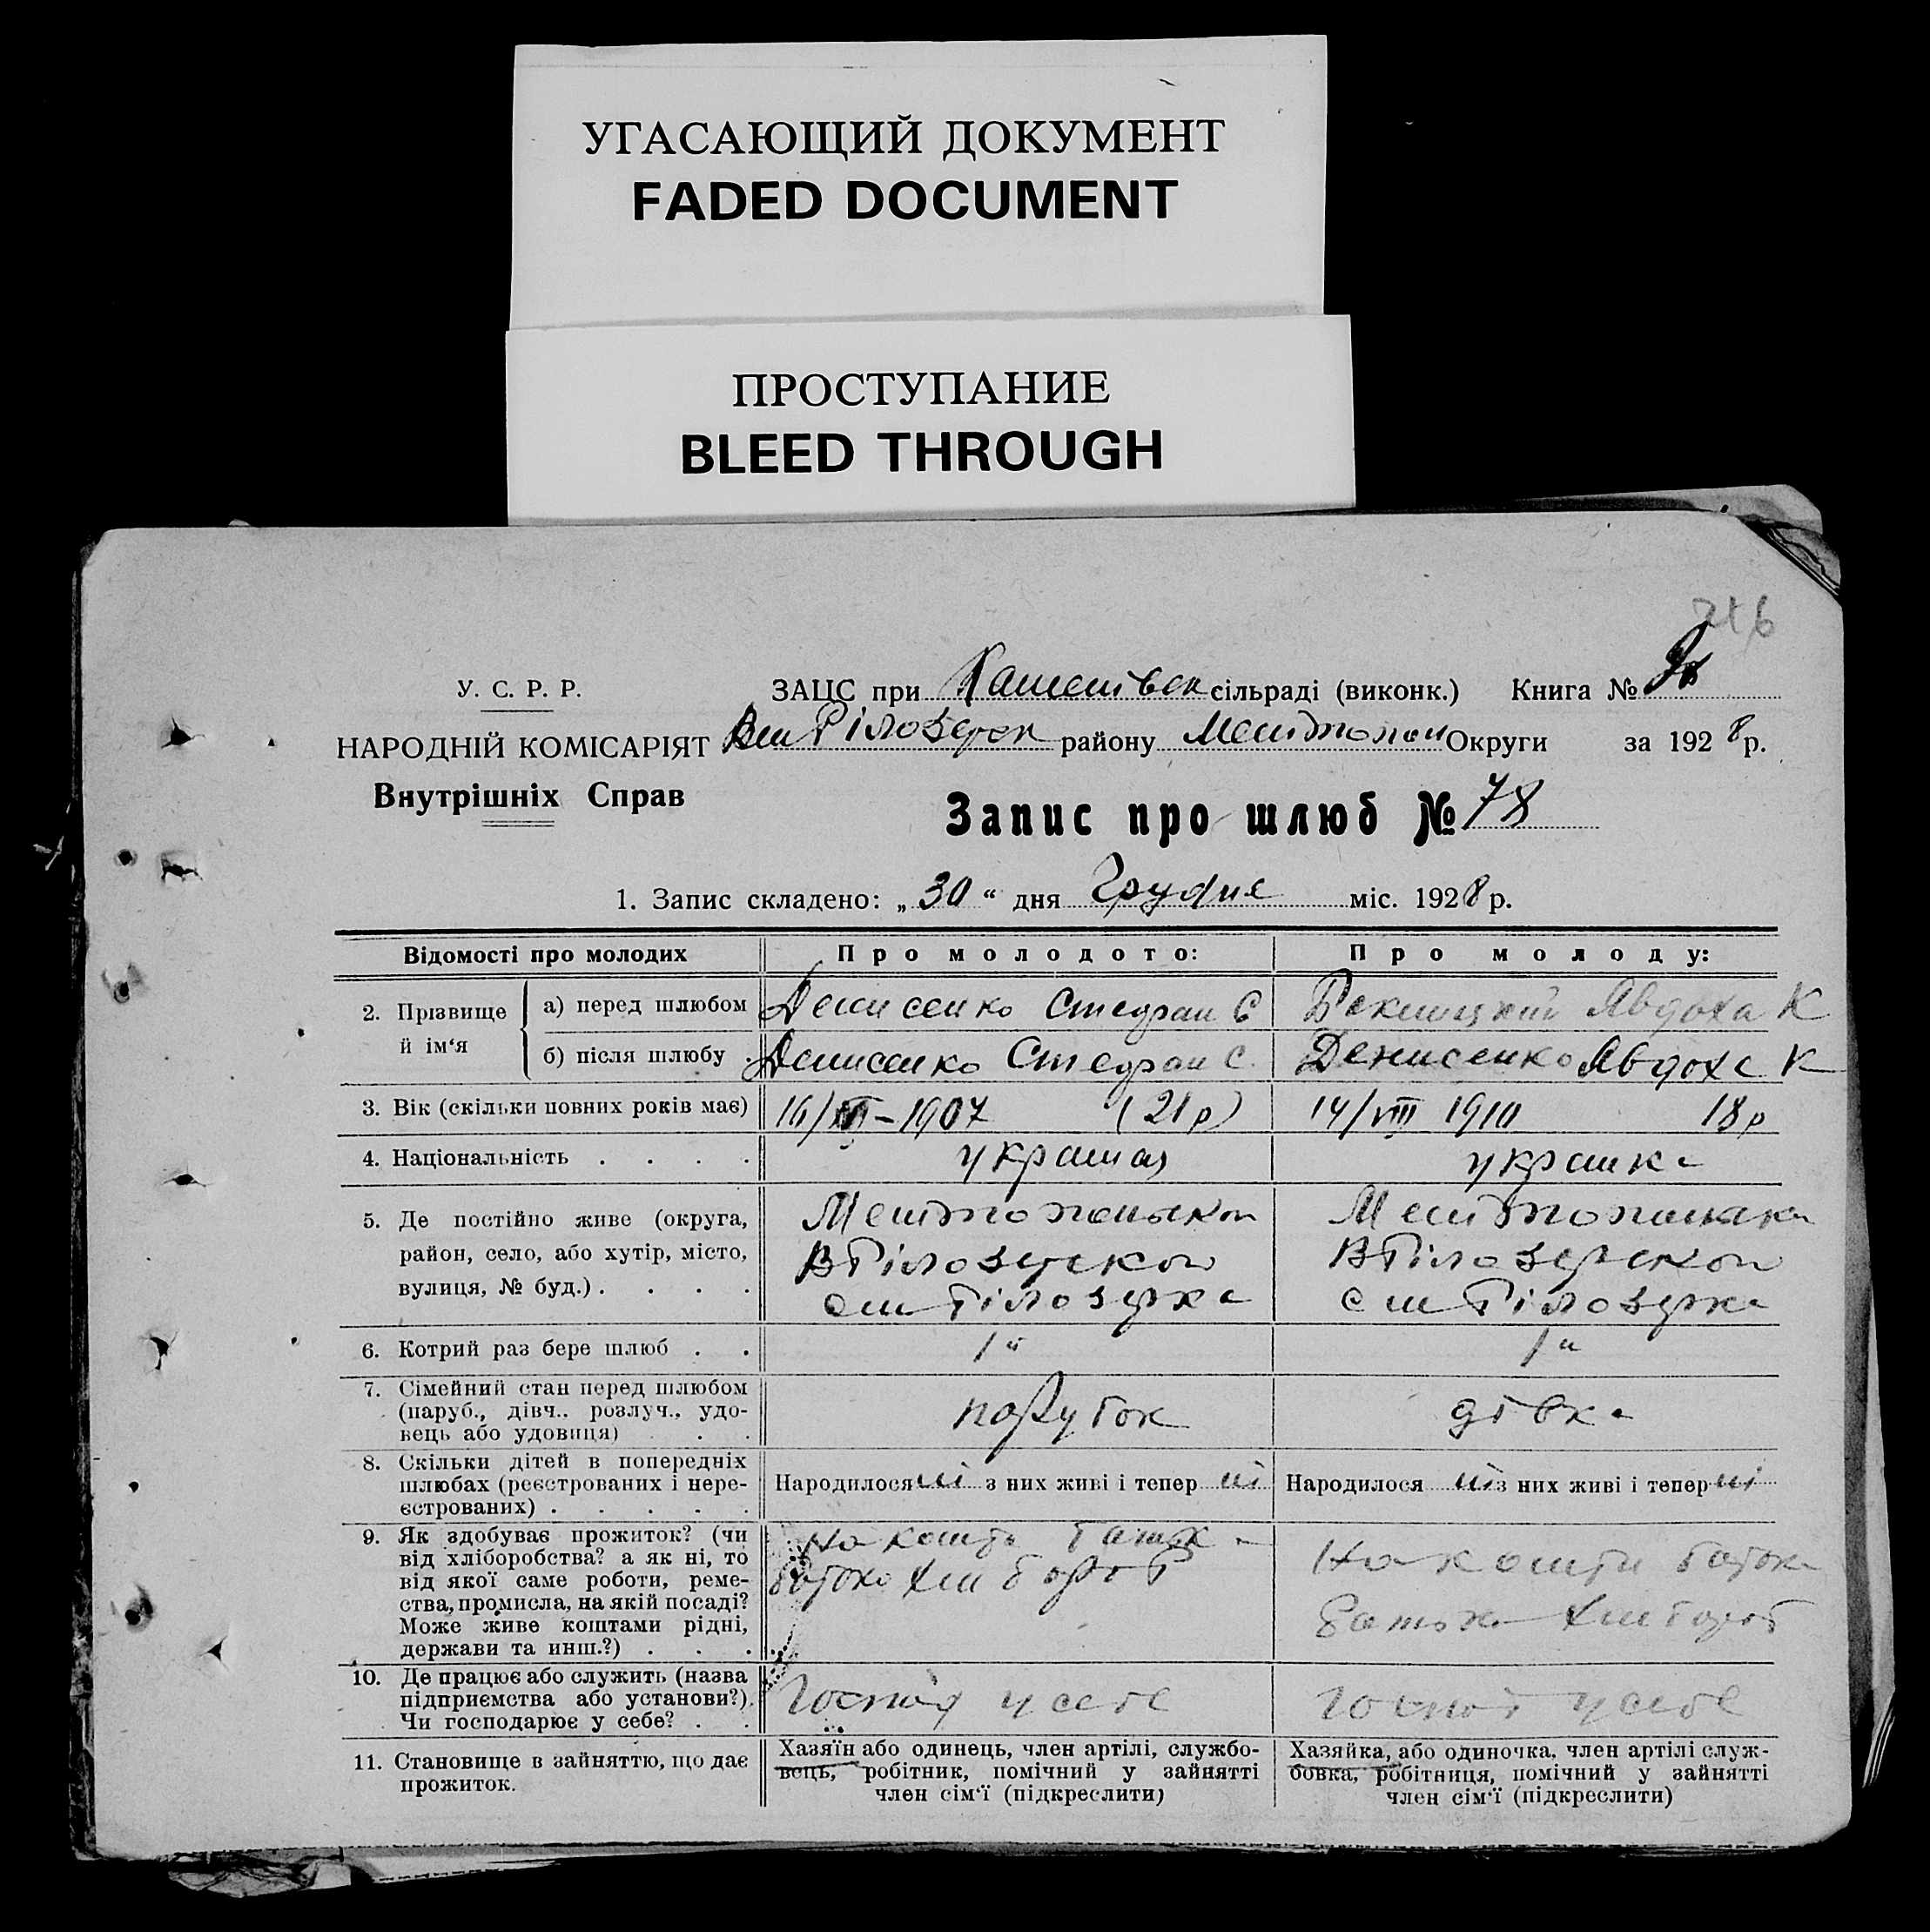 УГАСАЮЩИЙ ДОКУМЕНТ
FADED DOCUMENT
ПРОСТУПАНИЕ
BLEED THROUGH
У. С. Р. Р.
НАРОДНІЙ КОМІСАРІЯТ
Внутрішніх Справ
ЗАЦС при сільраді (виконк.) Книга №
району Округи за 1928 р.
Запис про шлюб № 78
1. Запис складено: „30“ дня Грудня міс. 1928 р.
Відомості про молодих
Про молодого:
Про молоду:
2. Прізвище й ім‘я
а) перед шлюбом
Денисенко Стефан С
Явдоха К
б) після шлюбу
Денисенко Стефан С.
Денисенко Явдоха К
3. Вік (скільки повних років має)
1907 (21 р)
14/VIII 1910 18 р
4. Національність . . . .
українка
5. Де постійно живе (округа,
район, село, або хутір, місто,
вулиця, № буд.) . . . .
В Білозерка
В Білозерка
6. Котрий раз бере шлюб . .
1й
1й
7. Сімейний стан перед шлюбом
(паруб., дівч., розлуч., удо-
вець або удовиця) . . .
парубок
дівка
8. Скільки дітей в попередніх
шлюбах (реєстрованих і нере-
єстрованих) . . . . .
Народилося ні з них живі і тепер ні
Народилося ні з них живі і тепер ні
9. Як здобуває прожиток? (чи
від хліборобства? а як ні, то
від якої саме роботи, реме-
ства, промисла, на якій посаді?
Може живе коштами рідні,
держави та инш.?) . . .
На кошти батька
батько хлібороб
На кошти батька
Батько хлібороб
10. Де працює або служить (назва
підприємства або установи?).
Чи господарює у себе? . .
Господ у себе
Господ у себе
11. Становище в зайняттю, що дає
прожиток.
Хазяїн або одинець, член артілі, службо-
вець, робітник, помічний у зайнятті
член сім‘ї (підкреслити)
Хазяйка, або одиночка, член артілі служ-
бовка, робітниця, помічний у зайнятті
член сім‘ї (підкреслити)